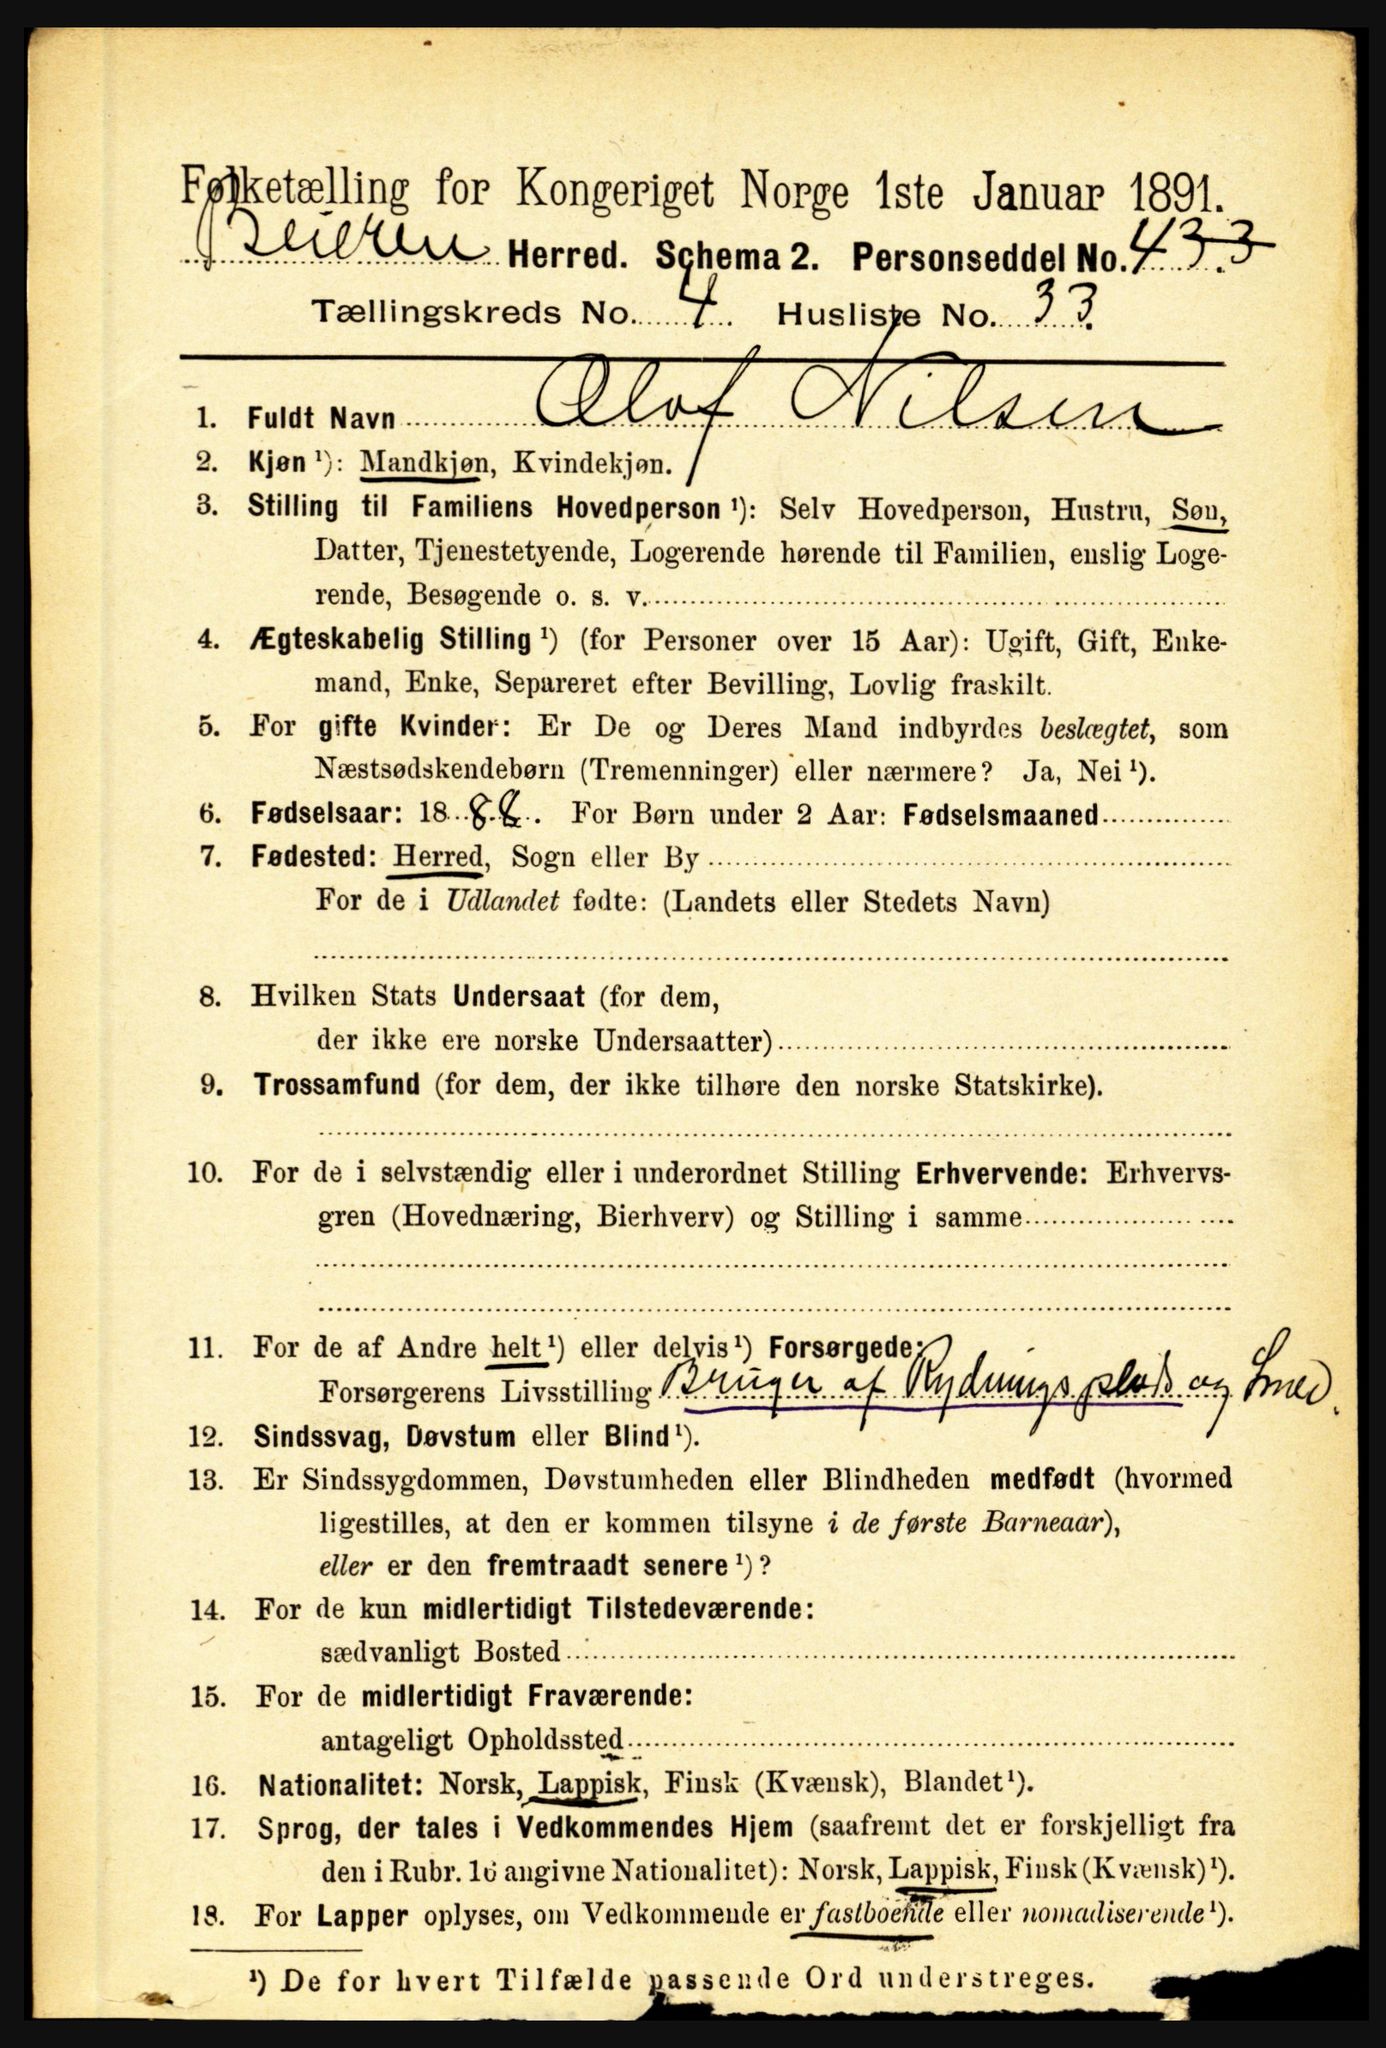 Folketælling for Kongeriget Norge 1ste Januar 1891.
Beieren Herred. Schema 2. Personseddel No. 433
Tællingskreds No. 4. Husliste No. 33.
1. Fuldt Navn Olof Nilsen
2. Kjøn ¹): Mandkjøn, Kvindekjøn.
3. Stilling til Familiens Hovedperson ¹): Selv Hovedperson, Hustru, Søn,
Datter, Tjenestetyende, Logerende hørende til Familien, enslig Loge-
rende, Besøgende o. s. v.
4. Ægteskabelig Stilling ¹) (for Personer over 15 Aar): Ugift, Gift, Enke-
mand, Enke, Separeret efter Bevilling, Lovlig fraskilt.
5. For gifte Kvinder: Er De og Deres Mand indbyrdes beslægtet, som
Næstsødskendebørn (Tremenninger) eller nærmere? Ja, Nei ¹).
6. Fødselsaar: 18 For Børn under 2 Aar: Fødselsmaaned
7. Fødested: Herred, Sogn eller By
For de i Udlandet fødte: (Landets eller Stedets Navn)
8. Hvilken Stats Undersaat (for dem,
der ikke ere norske Undersaatter)
9. Trossamfund (for dem, der ikke tilhøre den norske Statskirke).
10. For de i selvstændig eller i underordnet Stilling Erhvervende: Erhvervs-
gren (Hovednæring, Bierhverv) og Stilling i samme
11. For de af Andre helt ¹) eller delvis ¹) Forsørgede:
Forsørgerens Livsstilling Bruger af Rydningsplads og Smed.
12. Sindssvag, Døvstum eller Blind ¹).
13. Er Sindssygdommen, Døvstumheden eller Blindheden medfødt (hvormed
ligestilles, at den er kommen tilsyne i de første Barneaar),
eller er den fremtraadt senere ¹)?
14. For de kun midlertidigt Tilstedeværende:
sædvanligt Bosted
15. For de midlertidigt Fraværende:
antageligt Opholdssted
16. Nationalitet: Norsk, Lappisk, Finsk (Kvænsk), Blandet ¹).
17. Sprog, der tales i Vedkommendes Hjem (saafremt det er forskjelligt fra
den i Rubr. 16 angivne Nationalitet): Norsk, Lappisk, Finsk (Kvænsk) ¹).
18. For Lapper oplyses, om Vedkommende er fastboende eller nomadiserende ¹).
¹) De for hvert Tilfælde passende Ord understreges.